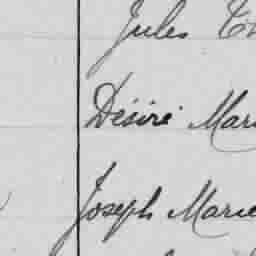 Jules
Désiré Mar
Joseph Marie